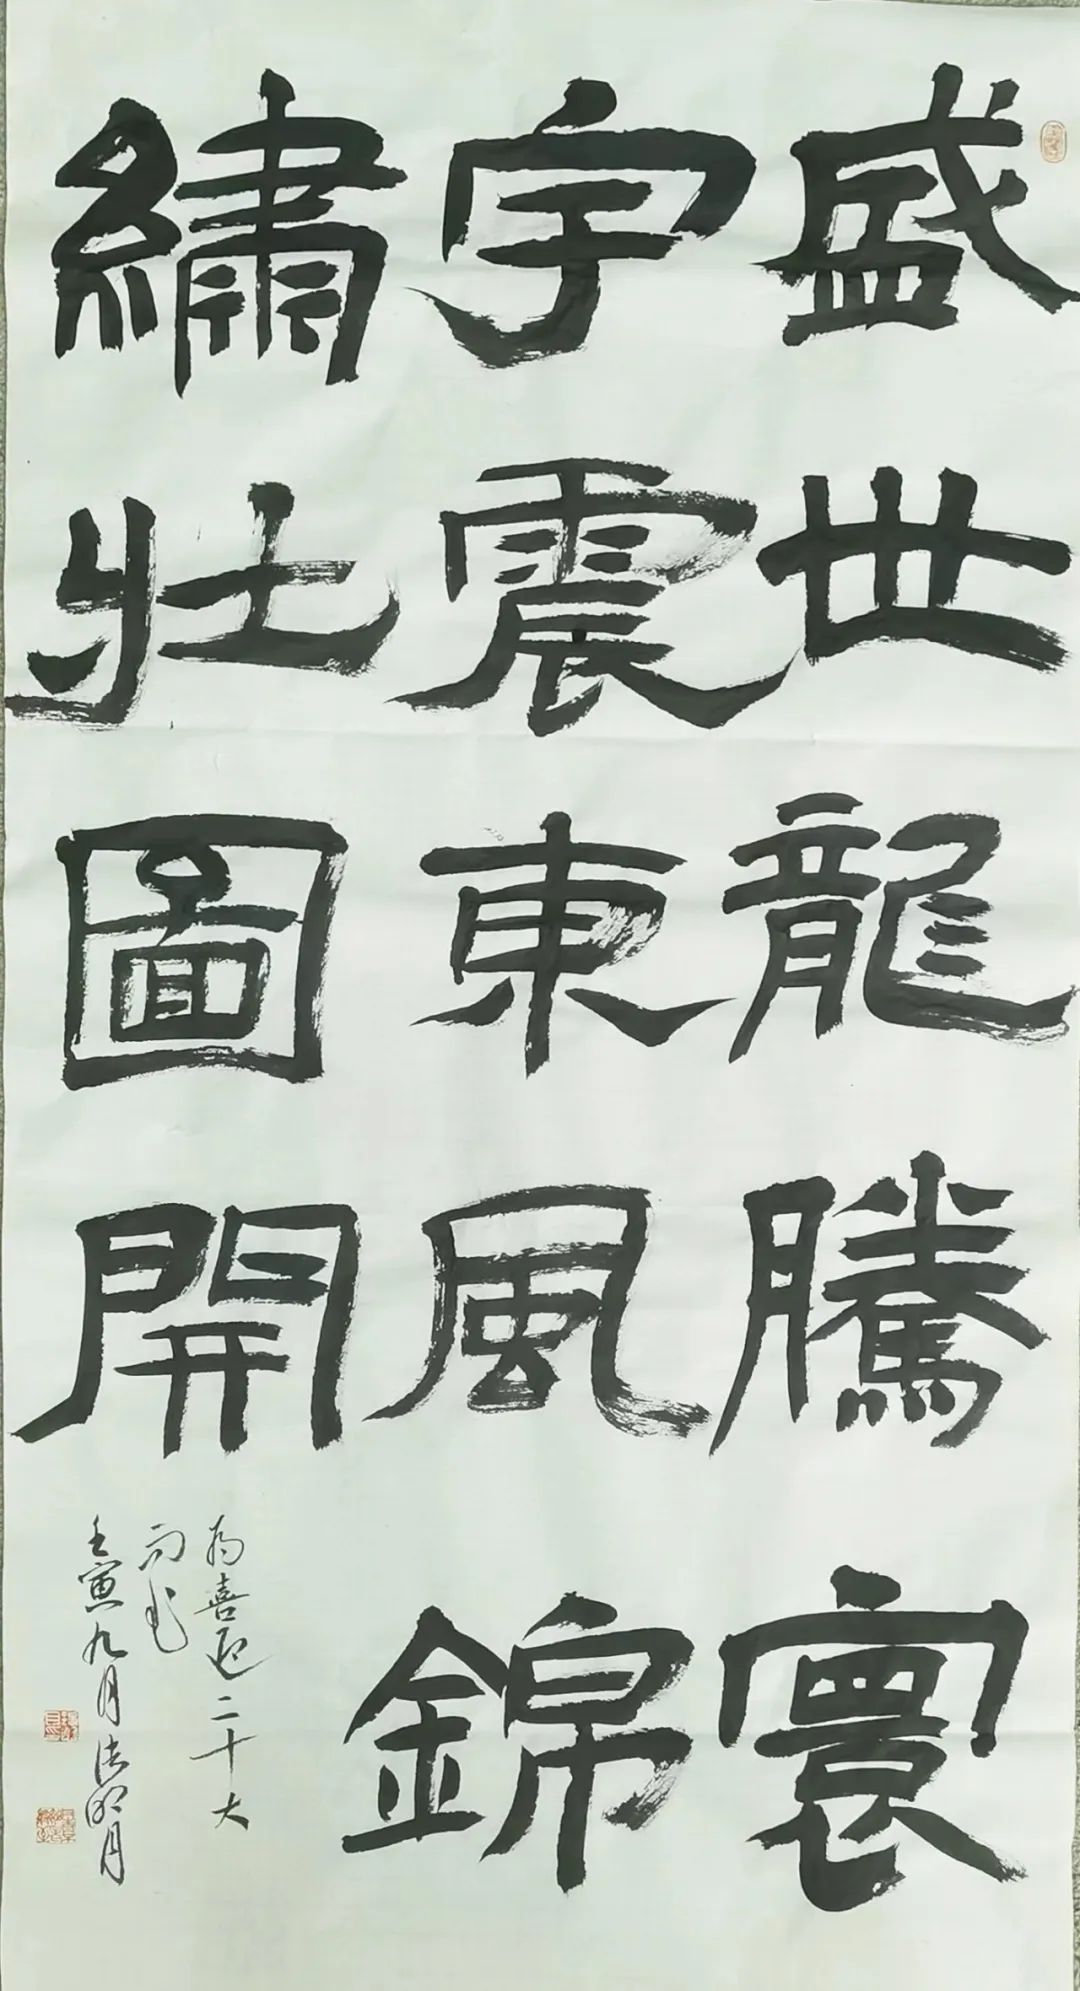 盛世龍騰寰
宇震東風錦
繡壯圖開
为喜迎二十大
而书
壬寅九月 明月